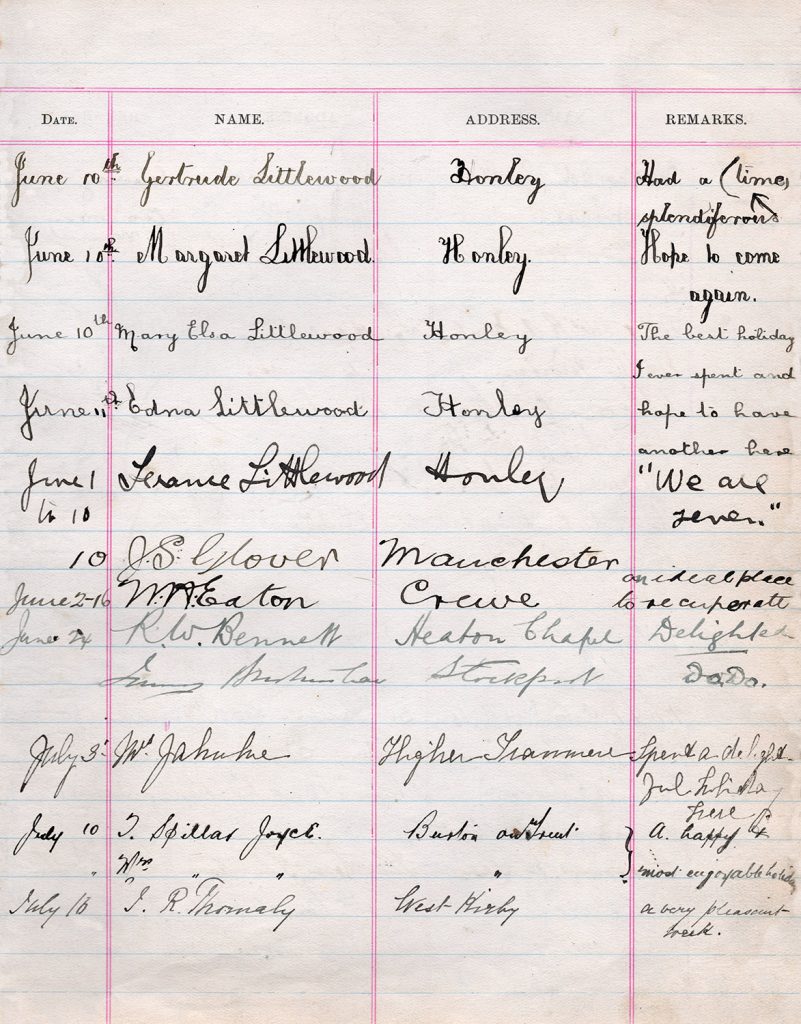 DATE. NAME. ADDRESS. REMARKS.
June 10th Gertrude Littlewood Honley Had a (time,
splendiferous
June 10th Margaret Littlewood. Honley. Hope to come
again.
June 10th Mary Elsa Littlewood Honley The best holiday
I ever spent and
June 11th Edna Littlewood Honley hope to have
another here
June 1 Littlewood Honley "We are
to 10 seven."
10 J. S. Glover Manchester
an ideal place
June 2-16 W. H. Eaton Crewe to recuperate
June 24 R. W. Bennett Heaton Chapel Delighted
Stockport Do. Do.
July 3 Mrs Higher Tranmere Spent a delight-
ful holiday
here
July 10 T. Spillar Joyce. Burton on Trent } A happy &
" Mrs " " " most enjoyable holiday
July 16 J. R. Thornaly West Kirby a very pleasant
week.